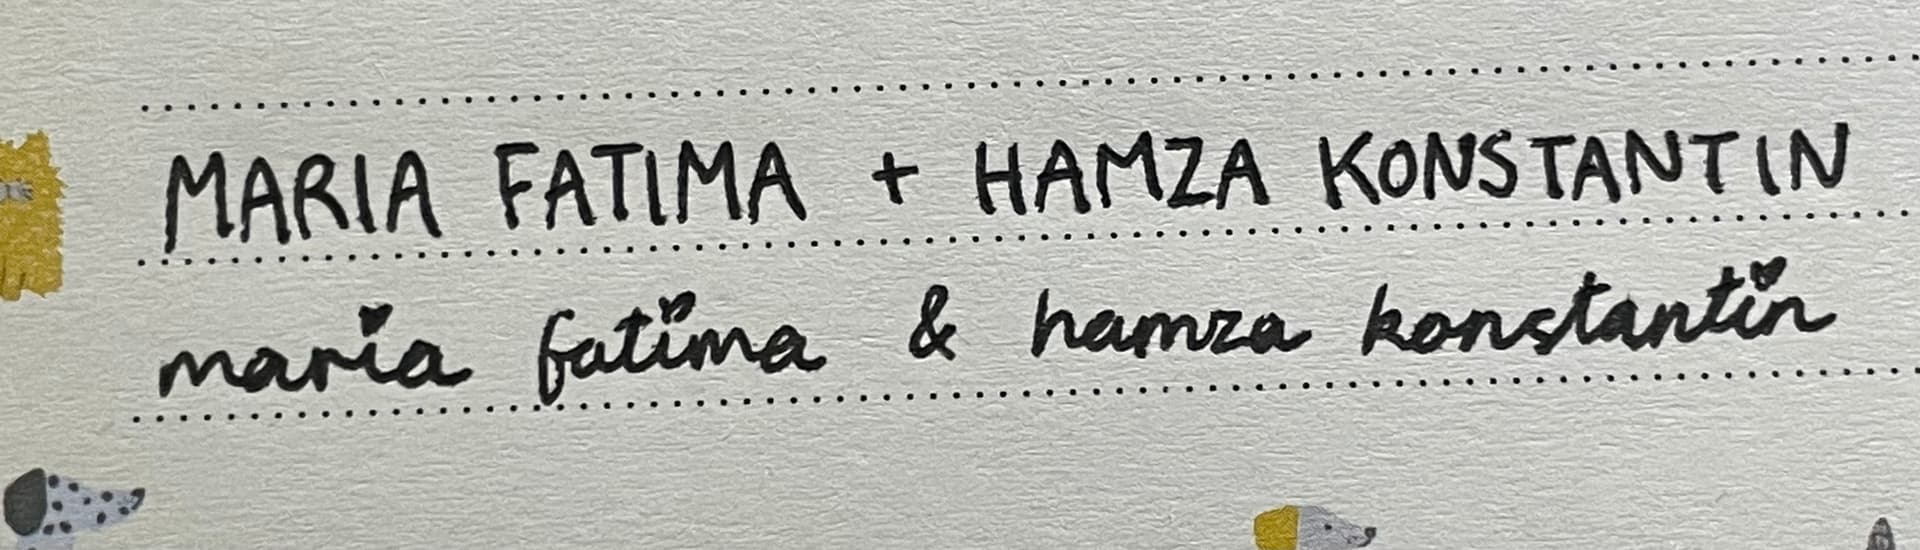 MARIA FATIMA + HAMZA KONSTANTIN
maria fatima & hamza konstantin